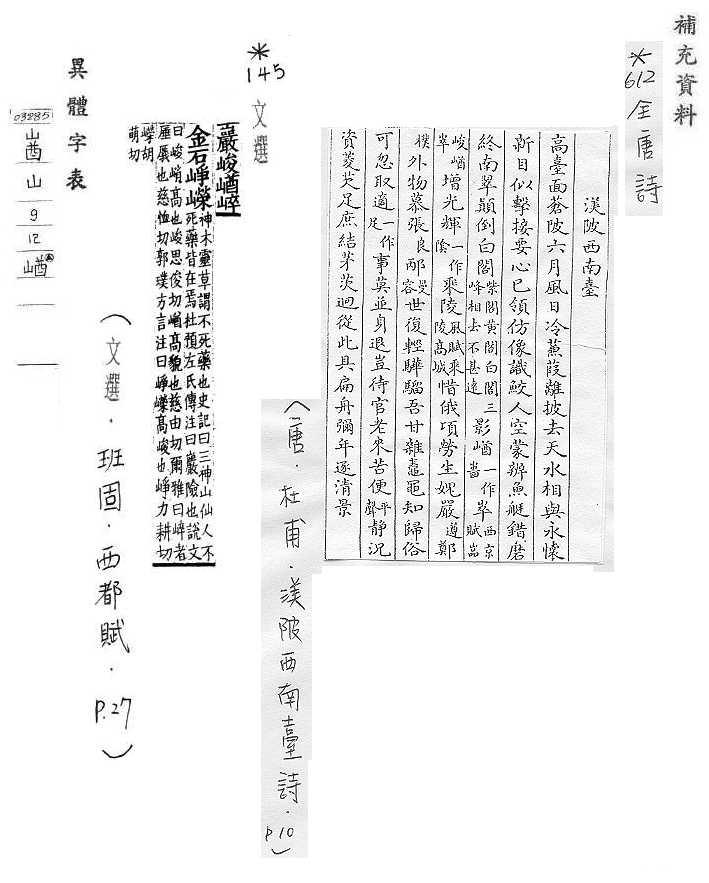 補充資料
*612 全唐詩
渼陂西南臺
高臺面蒼陂六月風日冷蒹葭離披去天水相與永懷
新目似擊接要心已領仿像識鮫人空蒙辨魚艇錯磨
終南翠顛倒白閣紫閣黃閣白閣三峰相去不甚遠影崷一作崒崷西京賦嵓
峻崷崒增光輝一作陰乘陵風賦乘陵高城惜俄頃勞生愧嚴遵鄭
樸外物慕張良邴曼容世復輕驊騮吾甘雜鼃黽知歸俗
可忽取適一作足事莫並身退豈待官老來苦便平聲靜況
資菱芡足庶結茅茨迥從此具扁舟彌年逐清景
(唐.杜甫.渼陂西南臺詩.p10)
*145 文選
巖峻崷崒
金石崢嶸神木靈草謂不死藥也史記曰三神山仙人不
死藥皆在焉杜預左氏傳注曰巖險也說文
曰峻峭高也峻思俊切崷高貌也慈由切爾雅曰崒者
厜㕒也慈恤切郭璞方言注曰崢嶸高峻也崢力耕切
嶸胡
萌切
(文選.班固.西都賦.P.27)
異體字表
03285
崷
山
9
12
崷